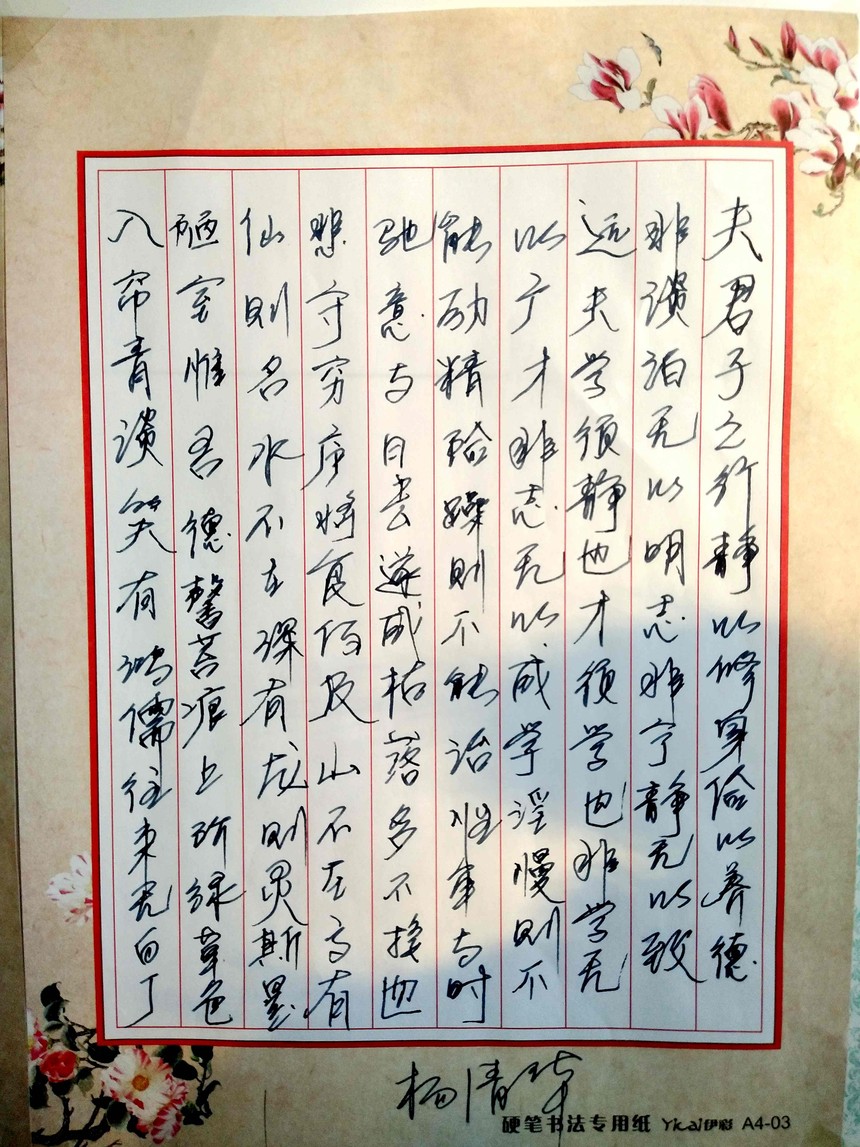 夫君子之行静以修身俭以养德
非淡泊无以明志非宁静无以致
远夫学须静也才须学也非学无
以广才非志无以成学淫慢则不
能励精险躁则不能治性年与时
驰意与日去遂成枯落多不接世
悲守穷庐将复何及山不在高有
仙则名水不在深有龙则灵斯是
陋室惟吾德馨苔痕上阶绿草色
入帘青谈笑有鸿儒往来无白丁
杨清华
硬笔书法专用纸 Yicai伊彩 A4-03